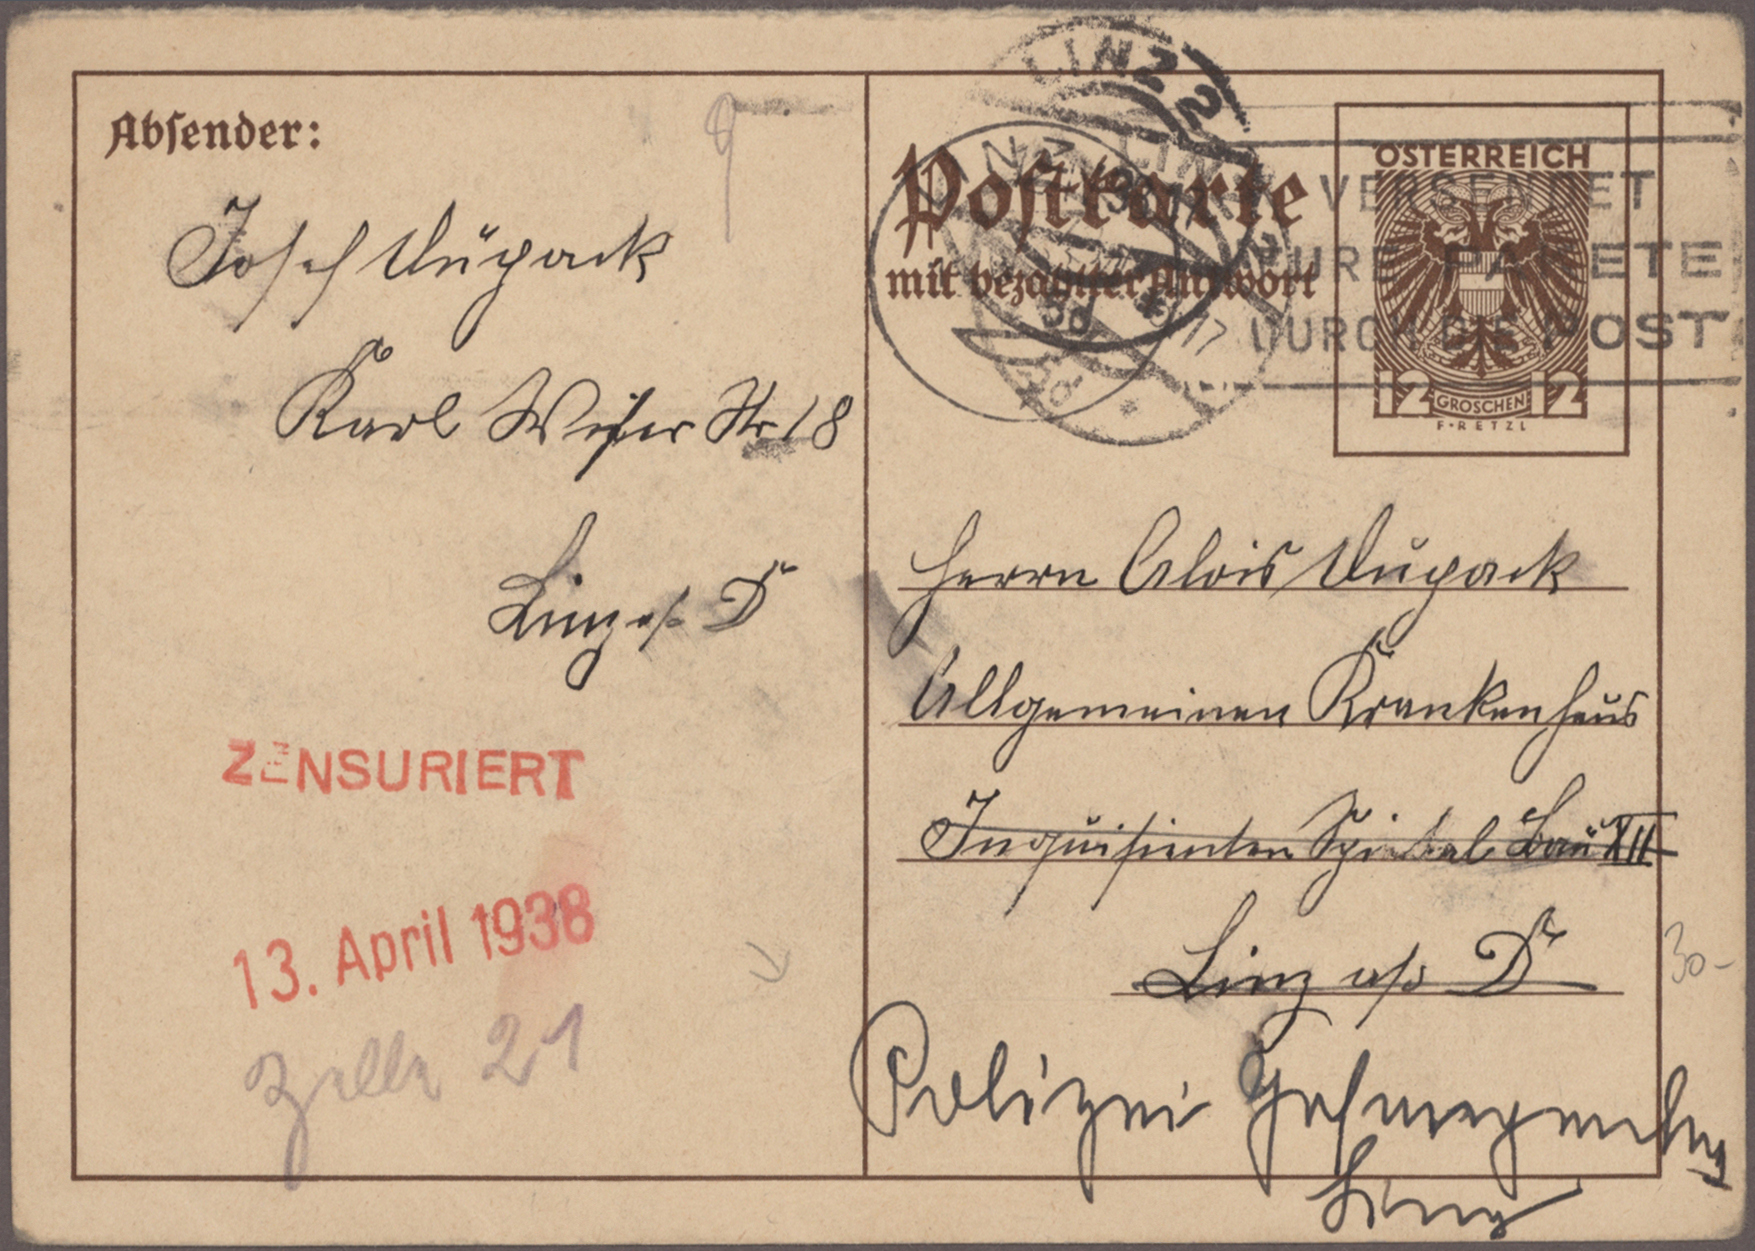 Absender:
Josef Dupack
Karl Wiser Str. 18
Linz a/ D
ZENSURIERT
13. April 1938
Zelle 21
LINZ 2
Postkarte
mit bezahlter Antwort
VERSENDET
EURE PAKETE
DURCH DIE POST
ÖSTERREICH
12 GROSCHEN 12
F·RETZL
Herrn Alois Dupack
Allgemeinen Krankenhaus
Inquisiten Spital Bau XII
Linz a/ D
30-
Polizei
Linz